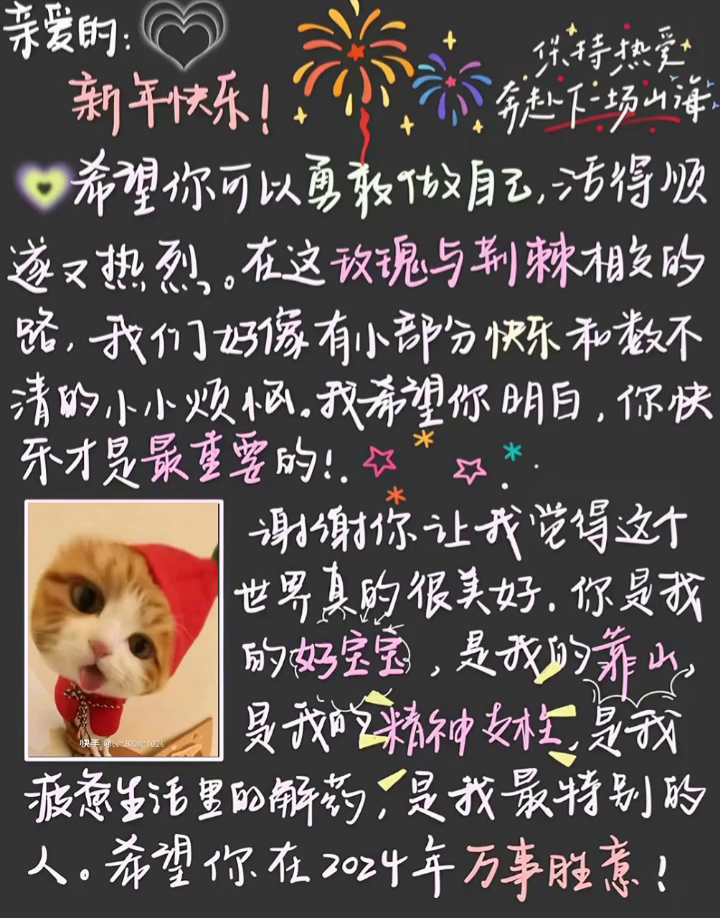 亲爱的：
新年快乐！
保持热爱
奔赴下一场山海
希望你可以勇敢做自己，活得顺
遂又热烈。在这玫瑰与荆棘相交的
路，我们好像有小部分快乐和数不
清的小小烦恼。我希望你明白，你快
乐才是最重要的！.
谢谢你让我觉得这个
世界真的很美好．你是我
的好宝宝，是我的靠山，
是我的精神支柱，是我
疲惫生活里的解药，是我最特别的
人。希望你在2024年万事胜意！
快手